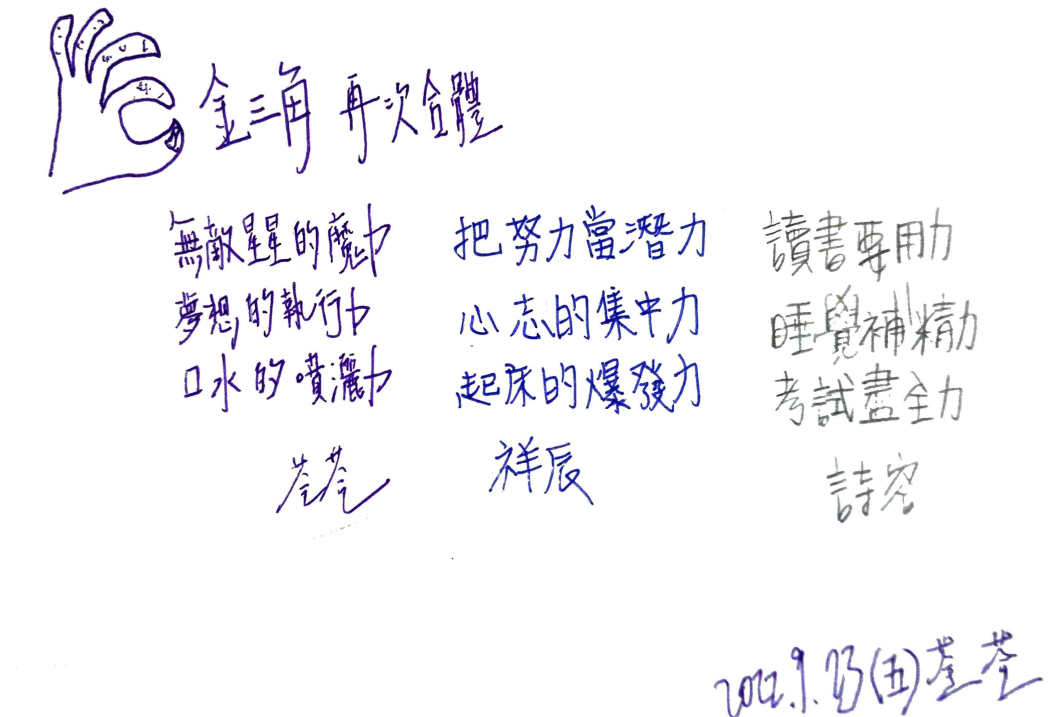 金三角 再次合體
無敵星星的魔力
夢想的執行力
口水的噴灑力
荃荃
把努力當潛力
心志的集中力
起床的爆發力
祥辰
讀書要用力
睡覺補精力
考試盡全力
詩容
2022.9.23(五)荃荃